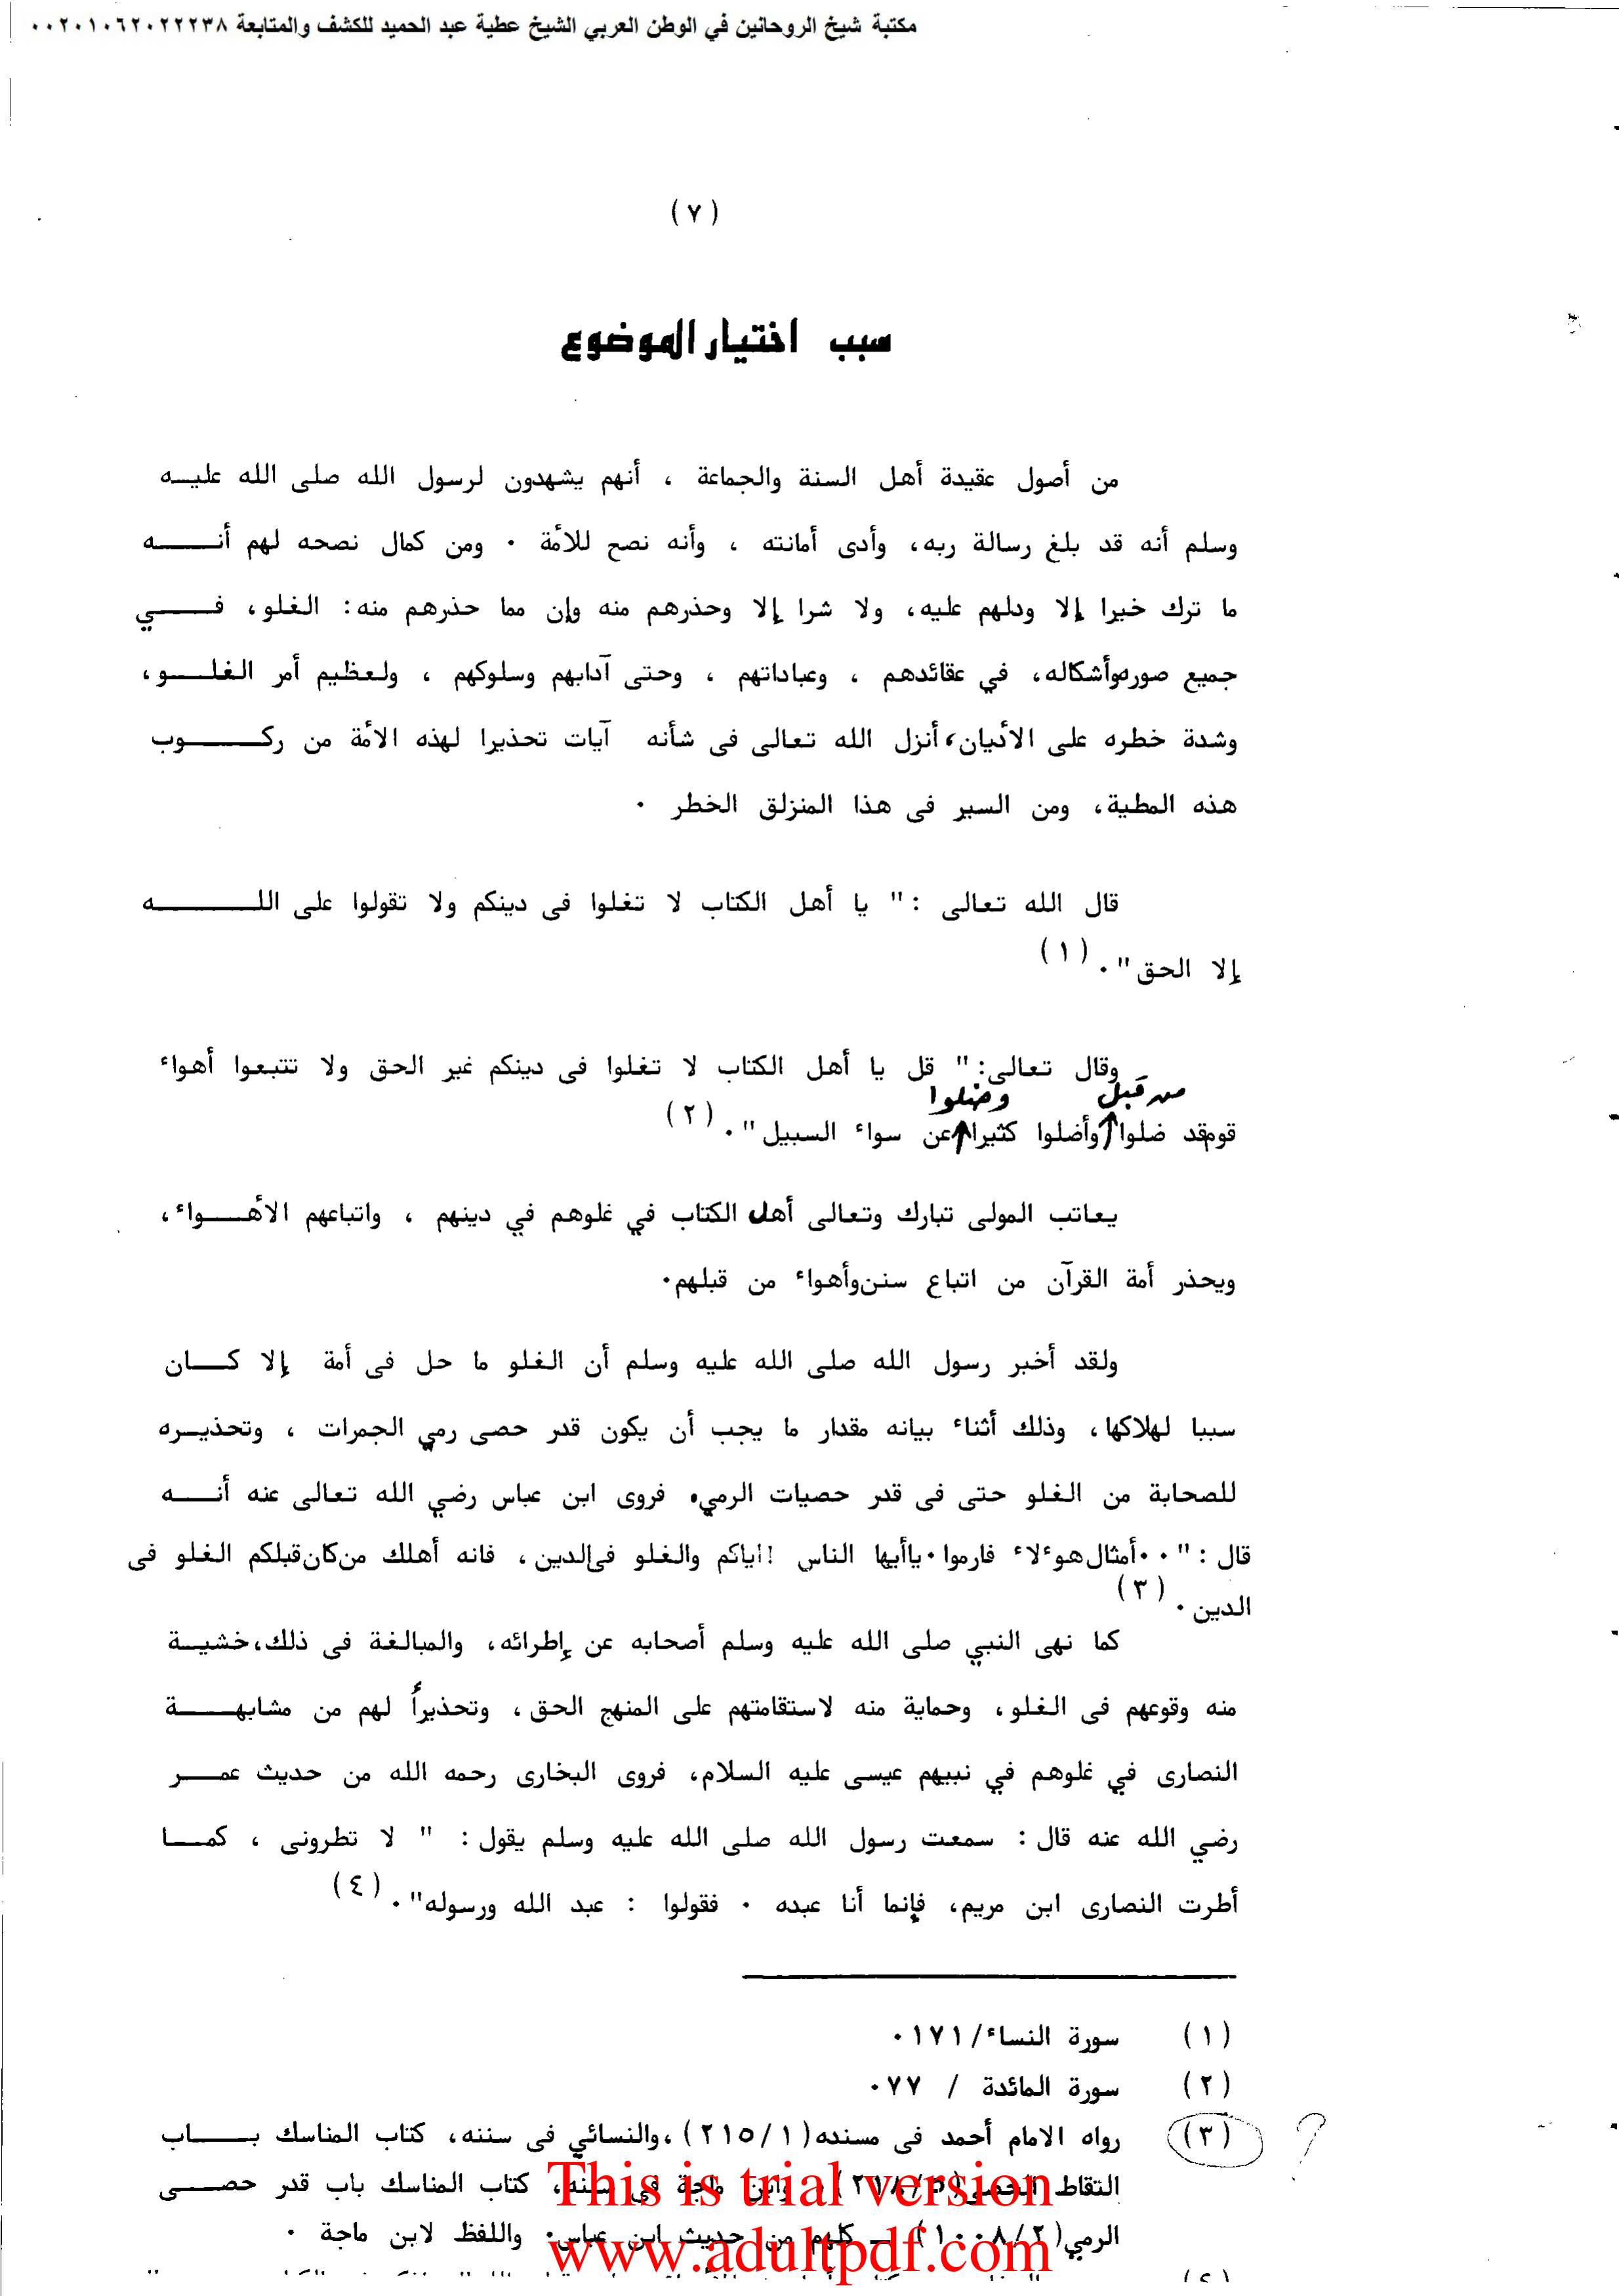 مكتبة شيخ الروحانين في الوطن العربي الشيخ عطية عبد الحميد للكشف والمتابعة ٠٠٢٠١٠٦٢٠٢٢٢٣٨
(٧)
سبب اختيار الموضوع
من أصول عقيدة أهل السنة والجماعة ، أنهم يشهدون لرسول الله صلى الله عليه
وسلم أنه قد بلغ رسالة ربه، وأدى أمانته ، وأنه نصح للأمة ٠ ومن كمال نصحه لهم أنه
ما ترك خيرا إلا ودلهم عليه، ولا شرا إلا وحذرهم منه وإن مما حذرهم منه: الغلو، في
جميع صوره وأشكاله، في عقائدهم ، وعباداتهم ، وحتى آدابهم وسلوكهم ، ولعظيم أمر الغلو،
وشدة خطره على الأديان، أنزل الله تعالى فى شأنه آيات تحذيرا لهذه الأمة من ركوب
هذه المطية، ومن السير فى هذا المنزلق الخطر ٠
قال الله تعالى : " يا أهل الكتاب لا تغلوا فى دينكم ولا تقولوا على الله
إلا الحق "٠ (١)
وقال تعالى: " قل يا أهل الكتاب لا تغلوا فى دينكم غير الحق ولا تتبعوا أهواء
من قبل وضلوا
قوم قد ضلوا وأضلوا كثيرا عن سواء السبيل "٠ (٢)
يعاتب المولى تبارك وتعالى أهل الكتاب في غلوهم في دينهم ، واتباعهم الأهواء،
ويحذر أمة القرآن من اتباع سنن وأهواء من قبلهم٠
ولقد أخبر رسول الله صلى الله عليه وسلم أن الغلو ما حل فى أمة إلا كان
سببا لهلاكها، وذلك أثناء بيانه مقدار ما يجب أن يكون قدر حصى رمي الجمرات ، وتحذيره
للصحابة من الغلو حتى فى قدر حصيات الرمي٠ فروى ابن عباس رضي الله تعالى عنه أنه
قال : "٠٠أمثال هوءلاء فارموا ٠ ياأيها الناس !اياكم والغلو فى الدين ، فانه أهلك من كان قبلكم الغلو فى
الدين ٠ (٣)
كما نهى النبي صلى الله عليه وسلم أصحابه عن إطرائه، والمبالغة فى ذلك، خشية
منه وقوعهم فى الغلو، وحماية منه لاستقامتهم على المنهج الحق ، وتحذيراً لهم من مشابهة
النصارى في غلوهم في نبيهم عيسى عليه السلام، فروى البخارى رحمه الله من حديث عمر
رضي الله عنه قال : سمعت رسول الله صلى الله عليه وسلم يقول : " لا تطرونى ، كما
أطرت النصارى ابن مريم، فإنما أنا عبده ٠ فقولوا : عبد الله ورسوله "٠ (٤)
(١) سورة النساء/١٧١٠
(٢) سورة المائدة / ٧٧٠
(٣) رواه الامام أحمد فى مسنده (٢١٥/١)، والنسائي فى سننه، كتاب المناسك باب ?
التقاط الحصى (٢١٨/٥) وابن ماجة في سننه، كتاب المناسك باب قدر حصى
الرمي (١٠٠٨/٢) ـ كلهم من حديث ابن عباس٠ واللفظ لابن ماجة ٠
This is trial version
www.adultpdf.com